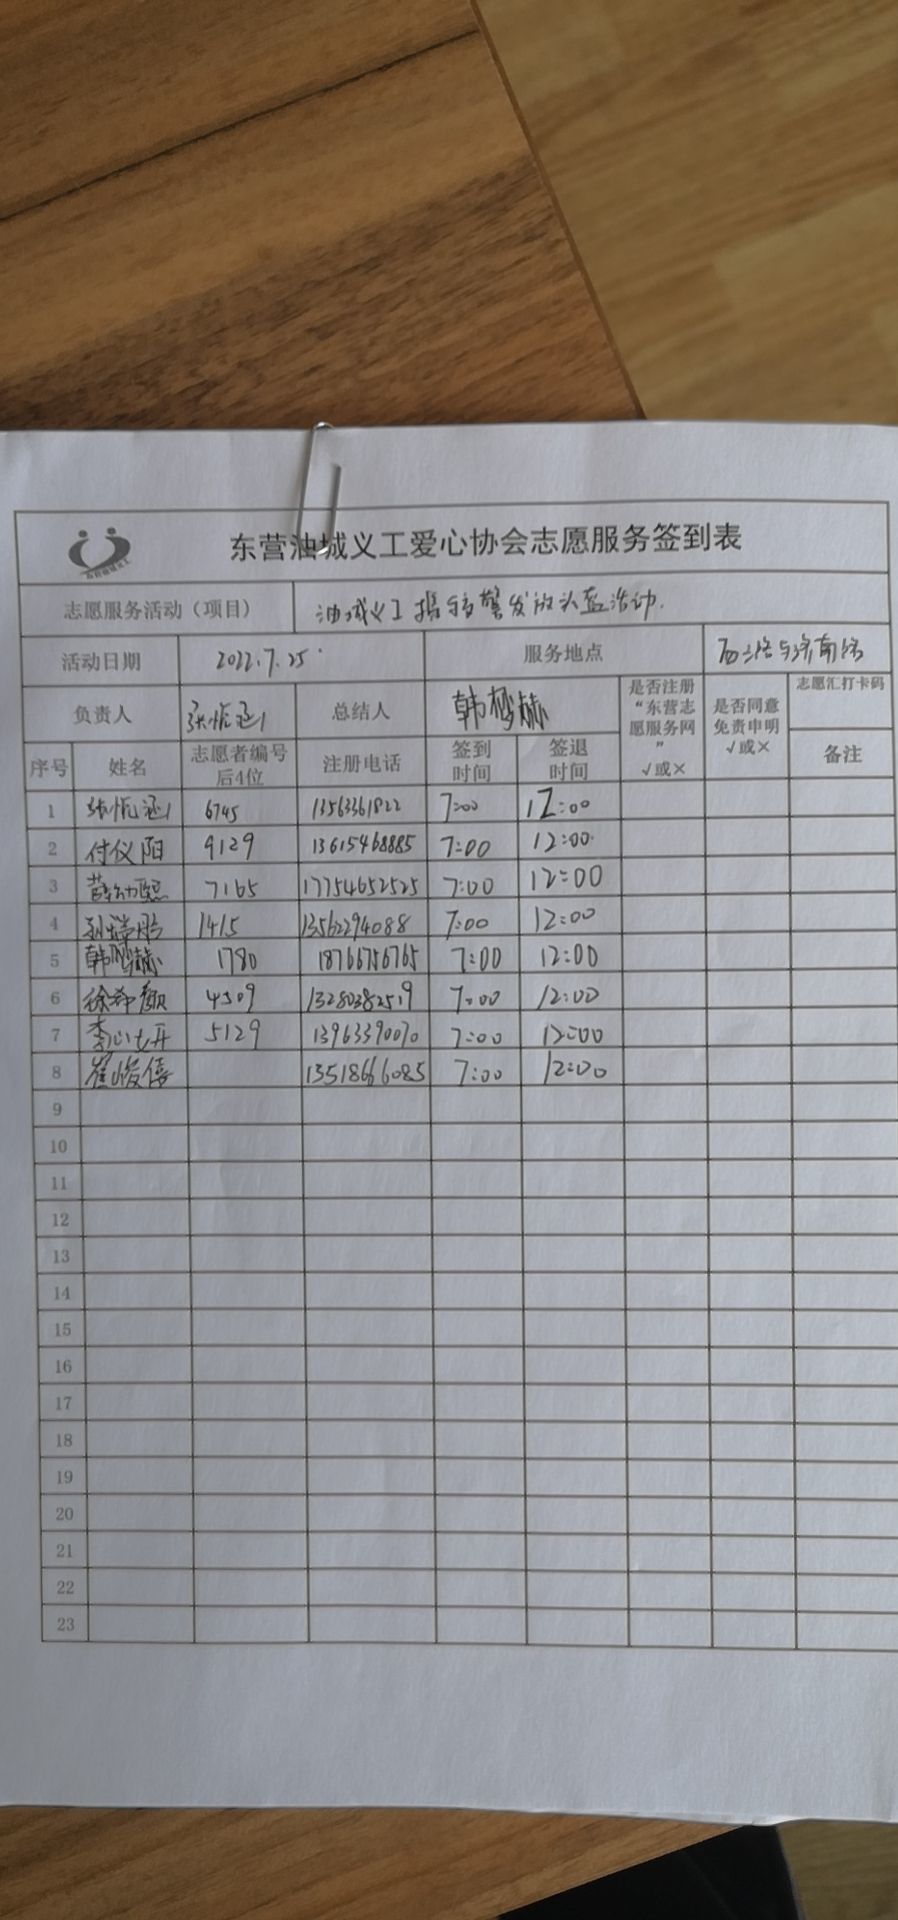 东营油城义工爱心协会志愿服务签到表
志愿服务活动（项目） 油城义工 发放头盔活动.
活动日期 2022.7.25 服务地点 西二路与济南路
负责人 总结人 韩梦赫 是否注册“东营志愿服务网” √或× 是否同意免责申明 √或× 志愿汇打卡码
序号 姓名 志愿者编号后4位 注册电话 签到时间 签退时间 备注
1 6745 13563361822 7:00 12:00
2 付仪阳 9129 13615468885 7:00 12:00
3 7165 17754652525 7:00 12:00
4 1415 13562294088 7:00 12:00
5 韩梦赫 1780 18766756765 7:00 12:00
6 徐希颜 4309 13280382519 7:00 12:00
7 5129 13963390070 7:00 12:00
8 崔峻僖 13518666085 7:00 12:00
9
10
11
12
13
14
15
16
17
18
19
20
21
22
23